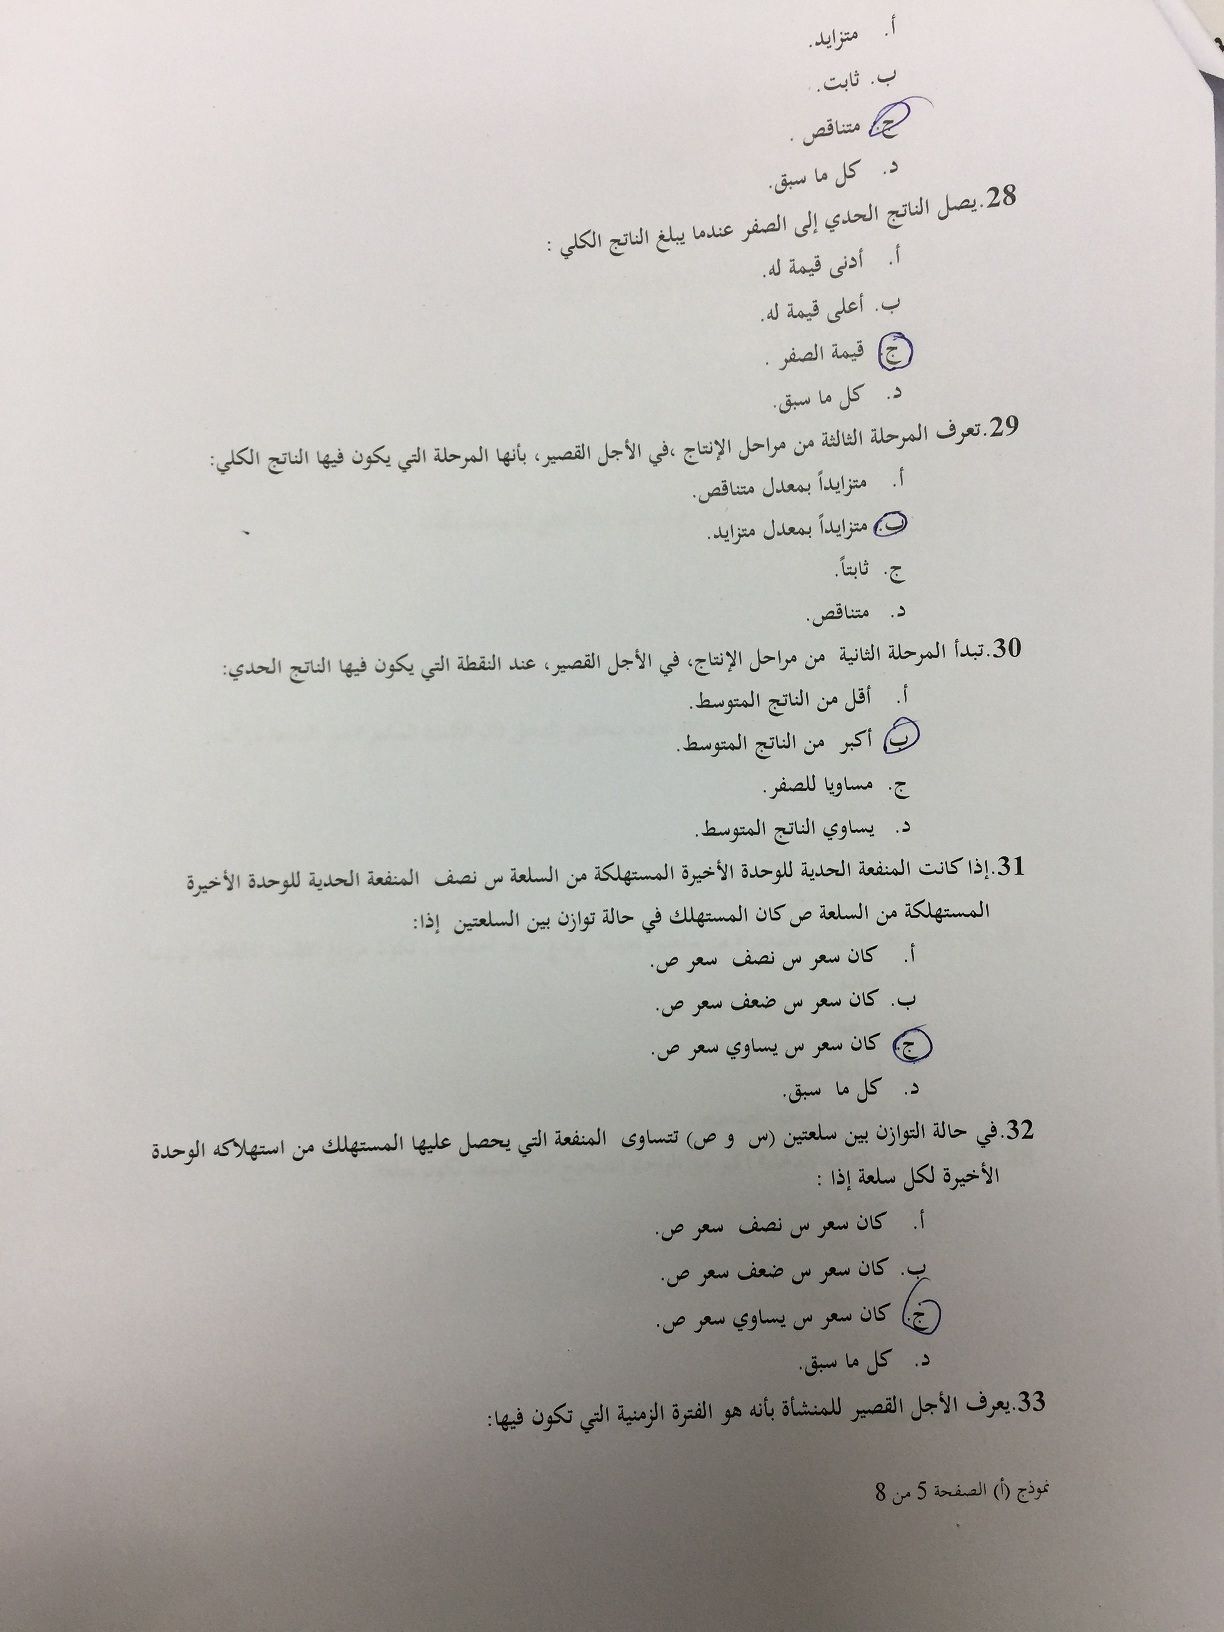 أ. متزايد.
ب. ثابت.
ج. متناقص .
د. كل ما سبق.
28.يصل الناتج الحدي إلى الصفر عندما يبلغ الناتج الكلي :
أ. أدنى قيمة له.
ب. أعلى قيمة له.
ج. قيمة الصفر .
د. كل ما سبق.
29.تعرف المرحلة الثالثة من مراحل الإنتاج ،في الأجل القصير، بأنها المرحلة التي يكون فيها الناتج الكلي:
أ. متزايداً بمعدل متناقص.
ب. متزايداً بمعدل متزايد.
ج. ثابتاً.
د. متناقص.
30.تبدأ المرحلة الثانية من مراحل الإنتاج، في الأجل القصير، عند النقطة التي يكون فيها الناتج الحدي:
أ. أقل من الناتج المتوسط.
ب. أكبر من الناتج المتوسط.
ج. مساويا للصفر.
د. يساوي الناتج المتوسط.
31.إذا كانت المنفعة الحدية للوحدة الأخيرة المستهلكة من السلعة س نصف المنفعة الحدية للوحدة الأخيرة
المستهلكة من السلعة ص كان المستهلك في حالة توازن بين السلعتين إذا:
أ. كان سعر س نصف سعر ص.
ب. كان سعر س ضعف سعر ص.
ج. كان سعر س يساوي سعر ص.
د. كل ما سبق.
32.في حالة التوازن بين سلعتين (س و ص) تتساوى المنفعة التي يحصل عليها المستهلك من استهلاكه الوحدة
الأخيرة لكل سلعة إذا :
أ. كان سعر س نصف سعر ص.
ب. كان سعر س ضعف سعر ص.
ج. كان سعر س يساوي سعر ص.
د. كل ما سبق.
33.يعرف الأجل القصير للمنشأة بأنه هو الفترة الزمنية التي تكون فيها:
نموذج (أ) الصفحة 5 من 8